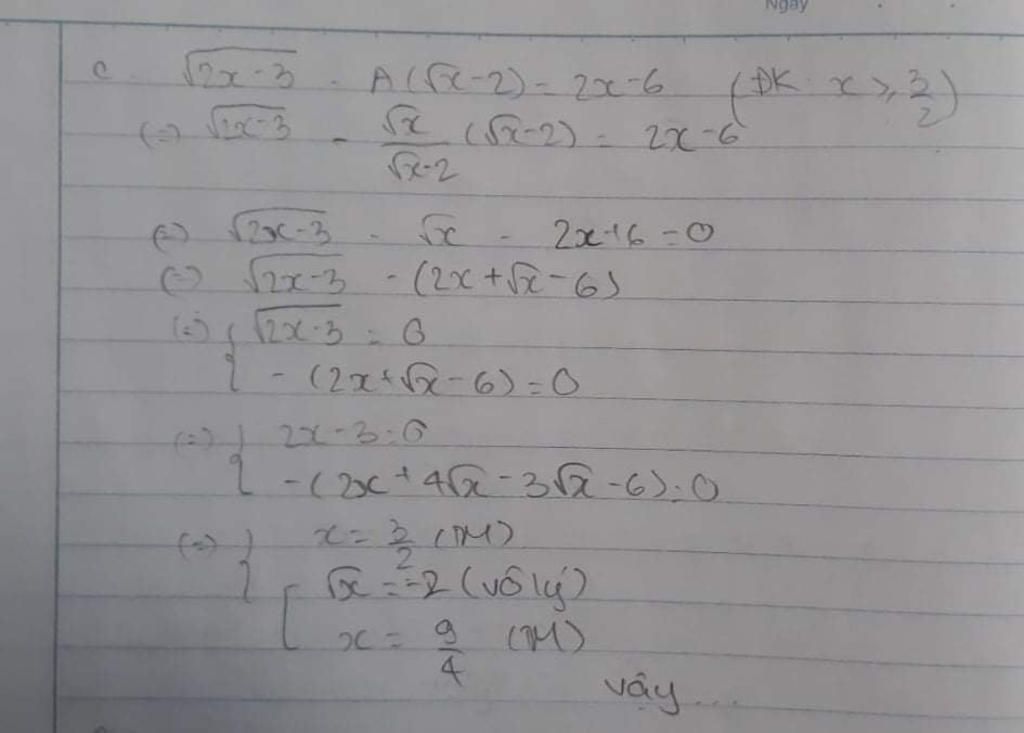 Ngày
c. √(2x-3) - A(√x-2) = 2x-6 (ĐK: x ≥ 3/2)
(=) √(2x-3) - √x/(√x-2) (√x-2) = 2x-6
(=) √(2x-3) - √x - 2x+6 = 0
(=) √(2x-3) - (2x+√x-6)
(=) { √(2x-3) = 0
-(2x+√x-6) = 0
(=) { 2x-3=0
-(2x+4√x-3√x-6)=0
(=) { x = 3/2 (TM)
[ √x = -2 (vô lý)
x = 9/4 (TM)
vậy...